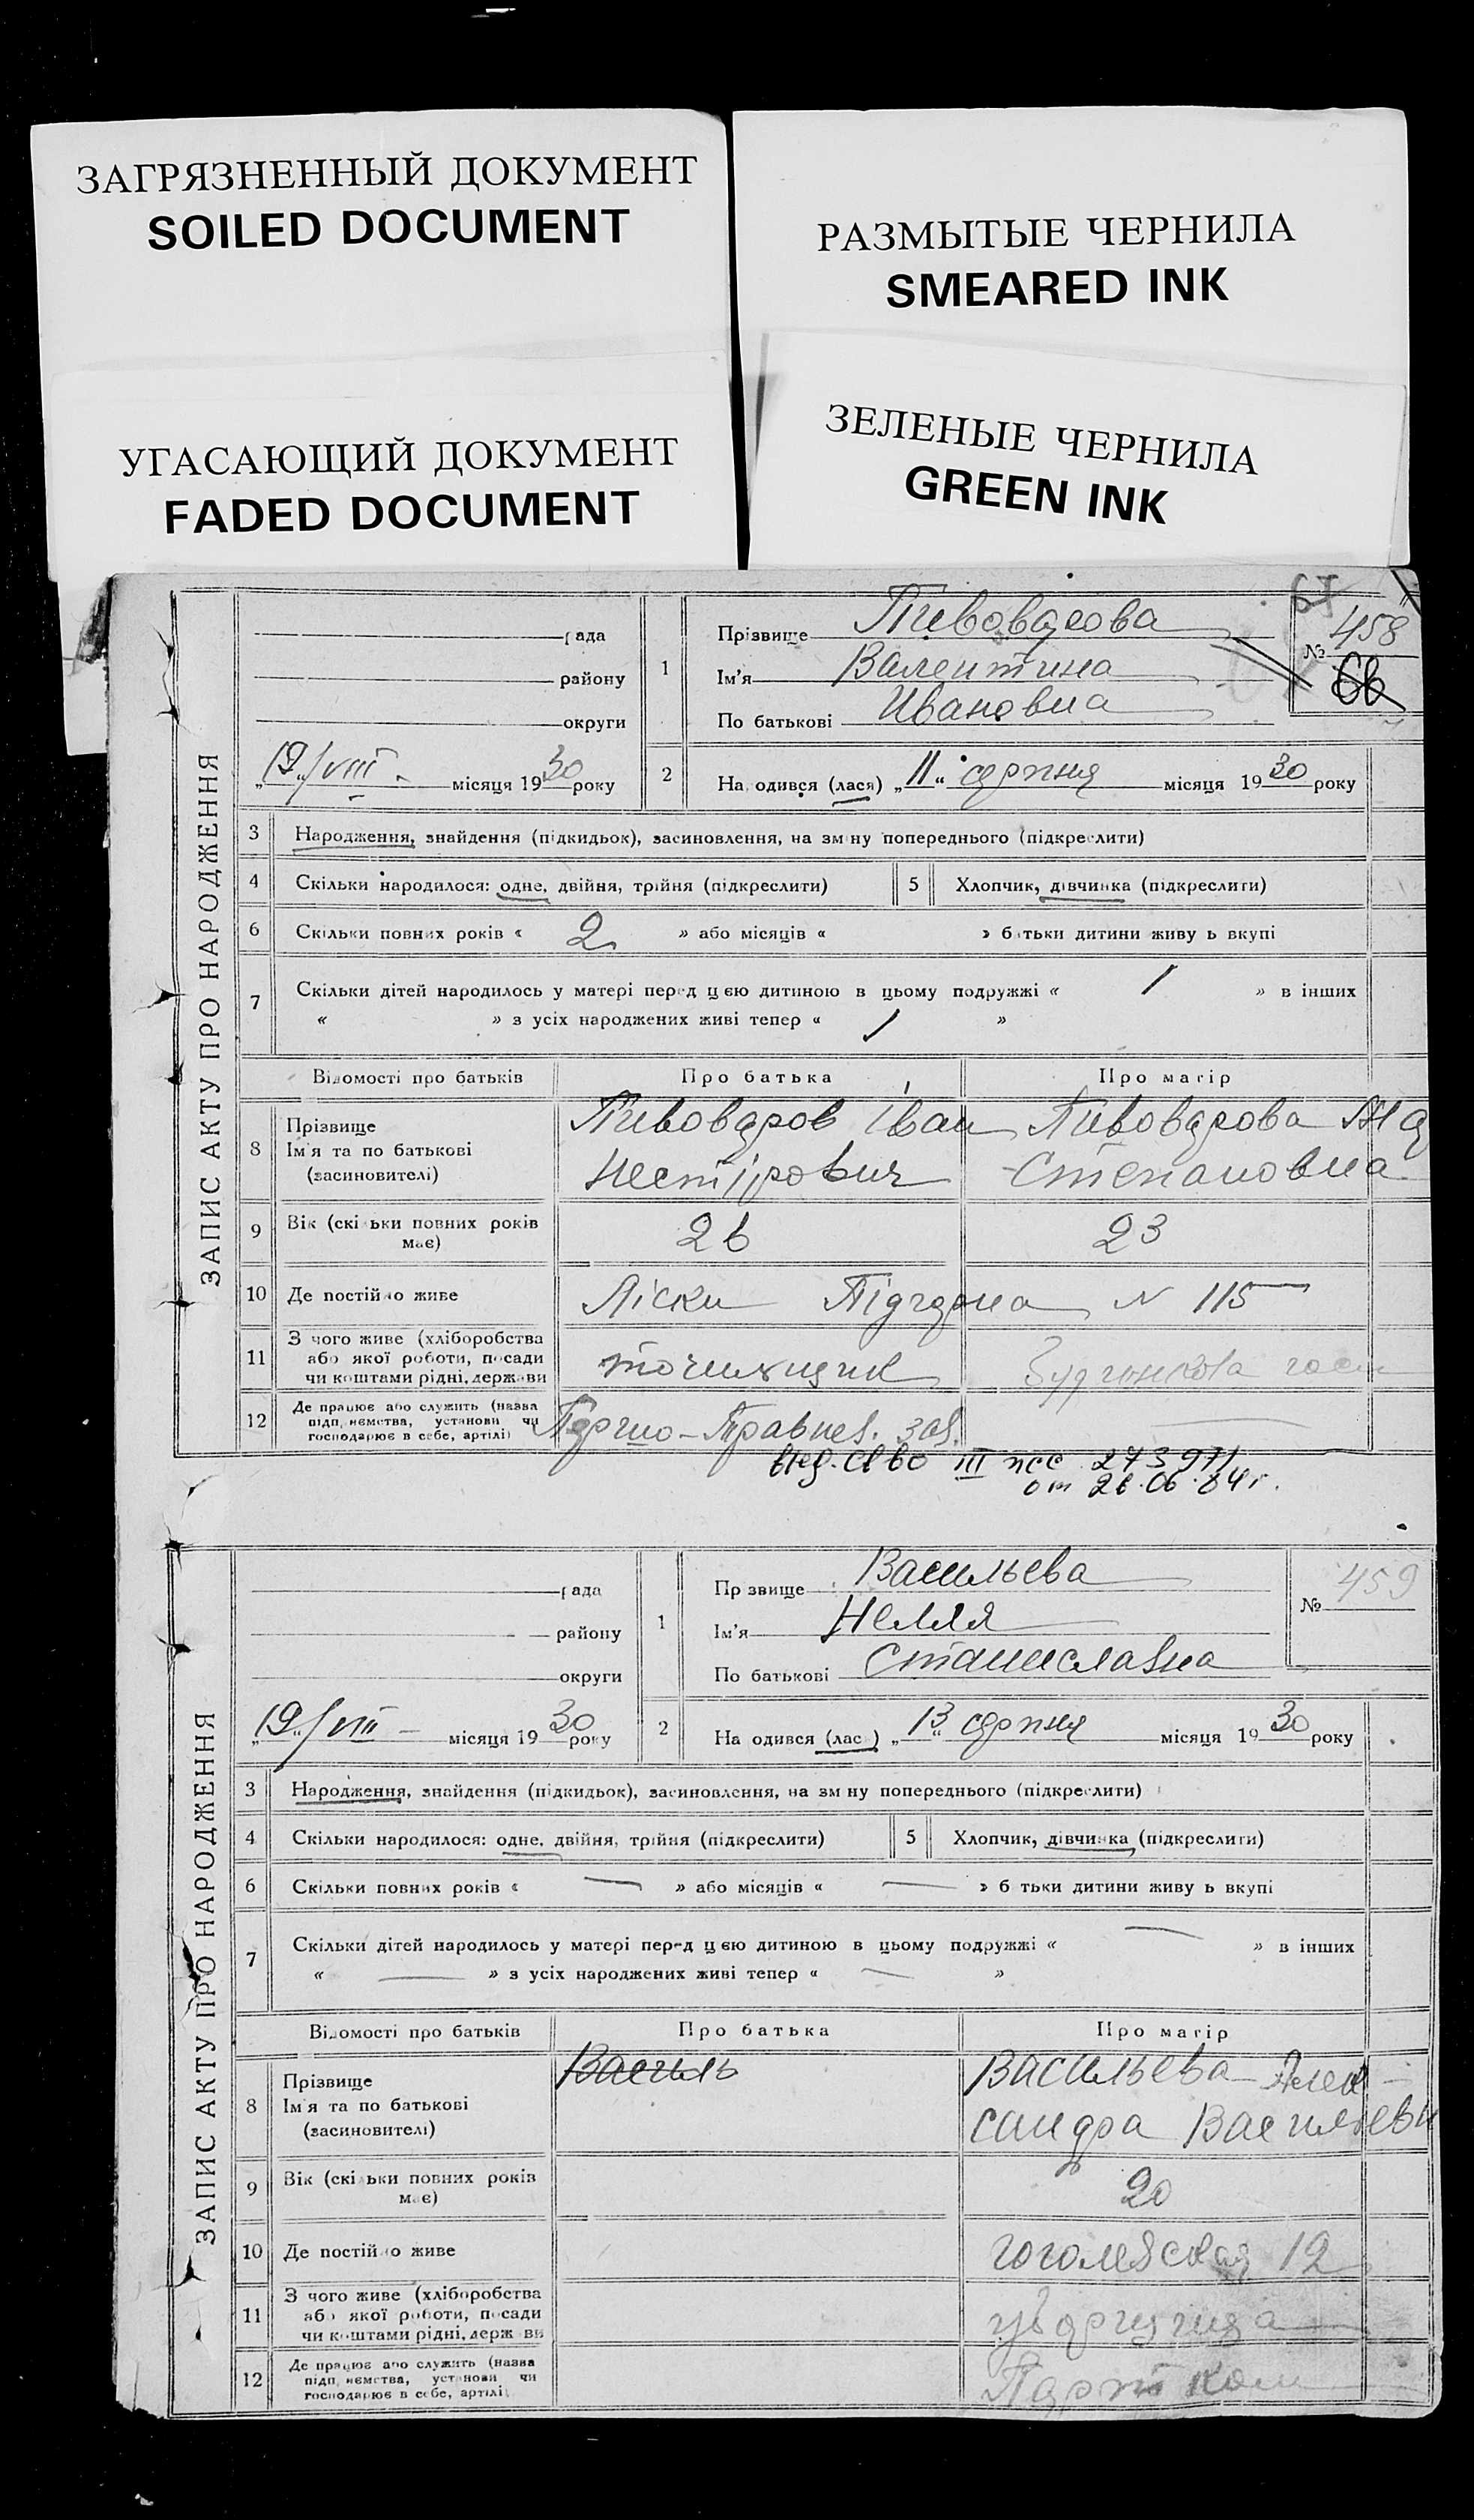 ЗАГРЯЗНЕННЫЙ ДОКУМЕНТ
SOILED DOCUMENT
РАЗМЫТЫЕ ЧЕРНИЛА
SMEARED INK
УГАСАЮЩИЙ ДОКУМЕНТ
FADED DOCUMENT
ЗЕЛЕНЫЕ ЧЕРНИЛА
GREEN INK
ЗАПИС АКТУ ПРО НАРОДЖЕННЯ
рада
району
округи
„19“/VIII - місяця 1930 року
1 Прізвище Пивоварова
Ім'я Валентина
По батькові Ивановна
№ 458
2 Народився (лася) „11“ серпня місяця 1930 року
3 Народження, знайдення (підкидьок), засиновлення, на зміну попереднього (підкреслити)
4 Скільки народилося: одне, двійня, трійня (підкреслити) 5 Хлопчик, дівчинка (підкреслити)
6 Скільки повних років « 2 » або місяців « » батьки дитини живуть вкупі
7 Скільки дітей народилось у матері перед цією дитиною в цьому подружжі « 1 » в інших
« » з усіх народжених живі тепер « 1 »
Відомості про батьків Про батька Про матір
8 Прізвище
Ім'я та по батькові
(засиновителі)
Пивоваров Іван
Нестірович
Пивоварова
Степановна
9 Вік (скільки повних років має) 26 23
10 Де постійно живе Ліски Підгорна N 115
11 З чого живе (хліборобства
або якої роботи, посади
чи коштами рідні, держави
точильщик
12 Де працює або служить (назва
підприємства, установи чи
господарює в себе, артілі)
от 26.06.84 г.
ЗАПИС АКТУ ПРО НАРОДЖЕННЯ
рада
району
округи
„19“/VIII - місяця 1930 року
1 Прізвище Васильева
Ім'я Нелля
По батькові Станиславна
№ 459
2 Народився (лася) „13“ серпня місяця 1930 року
3 Народження, знайдення (підкидьок), засиновлення, на зміну попереднього (підкреслити)
4 Скільки народилося: одне, двійня, трійня (підкреслити) 5 Хлопчик, дівчинка (підкреслити)
6 Скільки повних років « — » або місяців « — » батьки дитини живуть вкупі
7 Скільки дітей народилось у матері перед цією дитиною в цьому подружжі « — » в інших
« — » з усіх народжених живі тепер « — »
Відомості про батьків Про батька Про матір
8 Прізвище
Ім'я та по батькові
(засиновителі)
Василь
Васильева Алек-
сандра Васильевн
9 Вік (скільки повних років має) 20
10 Де постійно живе гоголевская 12
11 З чого живе (хліборобства
або якої роботи, посади
чи коштами рідні, держави
12 Де працює або служить (назва
підприємства, установи чи
господарює в себе, артілі)
Парт ком